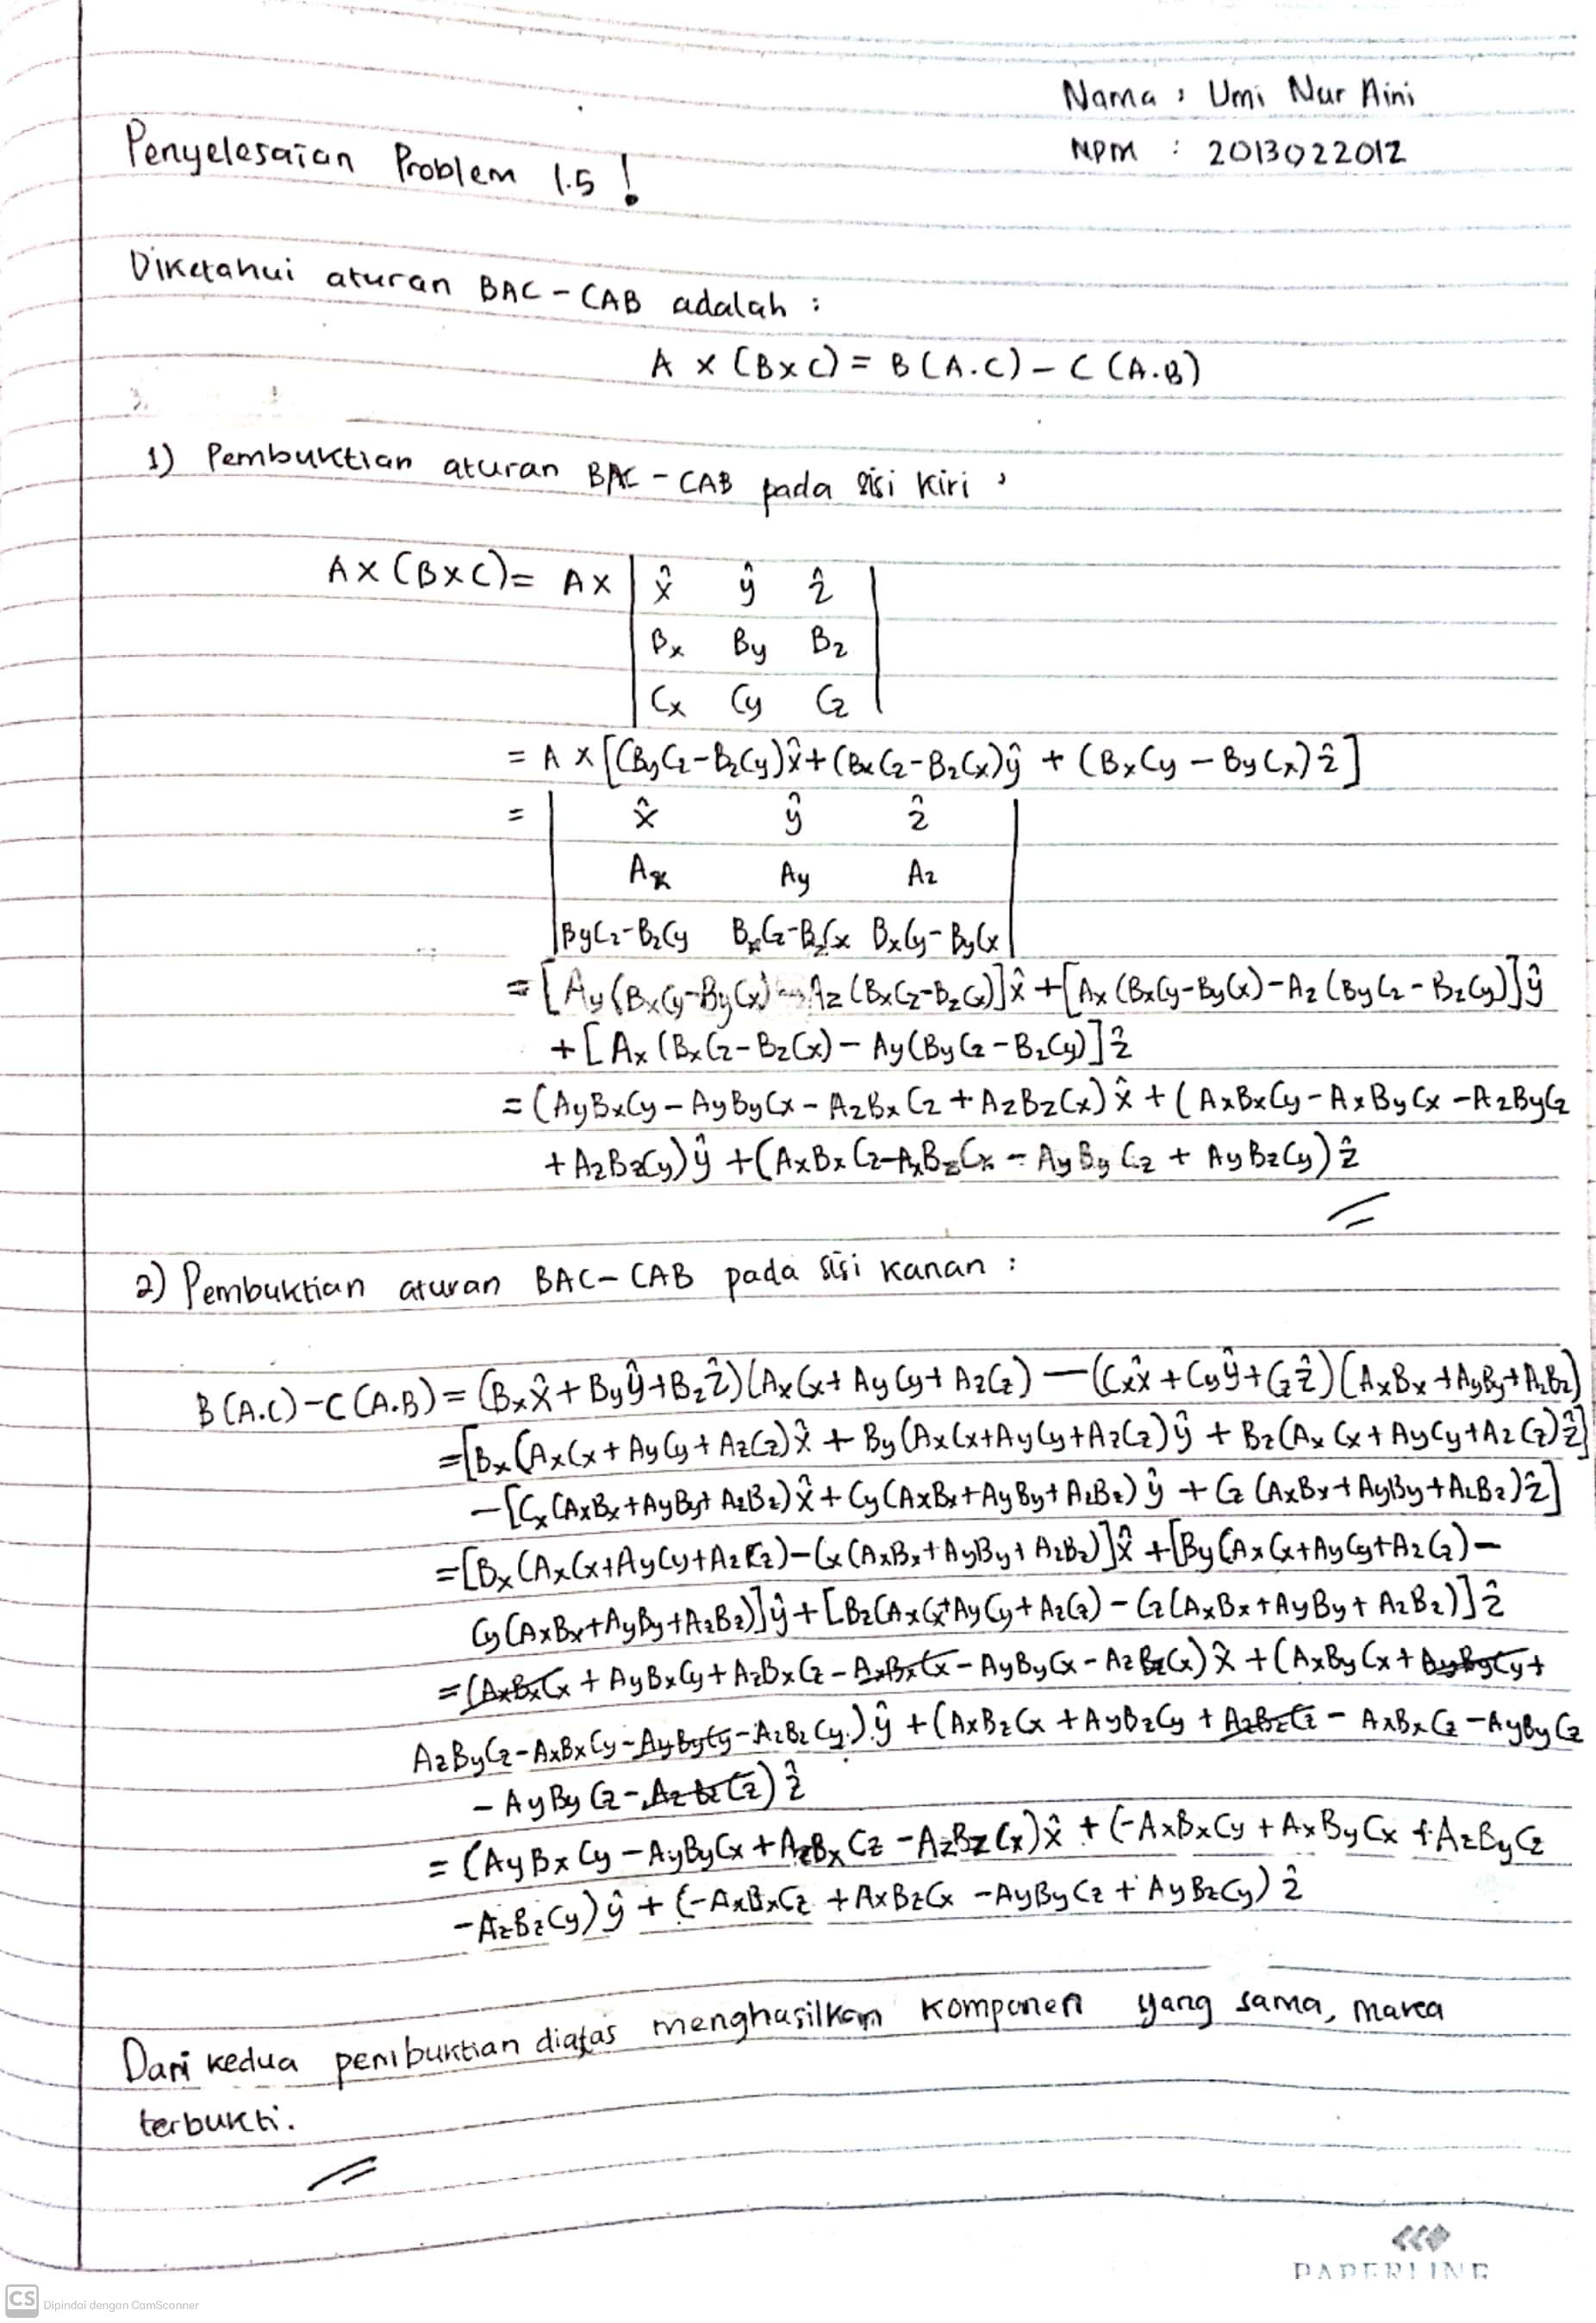 Nama : Umi Nur Aini
NPM : 2013022012
Penyelesaian Problem 1.5 !
Diketahui aturan BAC - CAB adalah :
A × (B×C) = B(A.C) - C(A.B)
1) Pembuktian aturan BAC - CAB pada sisi kiri :
A × (B×C) = A × | x̂ ŷ ẑ |
Bx By Bz
Cx Cy Cz
= A × [(ByCz-BzCy)x̂ + (BxCz-BzCx)ŷ + (BxCy - ByCx)ẑ]
= | x̂ ŷ ẑ |
Ax Ay Az
ByCz-BzCy BxCz-BzCx BxCy-ByCx
= [Ay(BxCy-ByCx) - Az(BxCz-BzCx)]x̂ + [Ax(BxCy-ByCx)-Az(ByCz-BzCy)]ŷ
+ [Ax(BxCz-BzCx) - Ay(ByCz-BzCy)]ẑ
= (AyBxCy - AyByCx - AzBxCz + AzBzCx)x̂ + (AxBxCy - AxByCx - AzByCz
+ AzBzCy)ŷ + (AxBxCz-AxBzCx - AyByCz + AyBzCy)ẑ
2) Pembuktian aturan BAC - CAB pada sisi kanan :
B(A.C)-C(A.B) = (Bxx̂ + Byŷ + Bzẑ)(AxCx + AyCy + AzCz) - (Cxx̂ + Cyŷ + Czẑ)(AxBx + AyBy + AzBz)
= [Bx(AxCx + AyCy + AzCz)x̂ + By(AxCx+AyCy+AzCz)ŷ + Bz(AxCx + AyCy + AzCz)ẑ]
- [Cx(AxBx + AyBy + AzBz)x̂ + Cy(AxBx+AyBy+AzBz)ŷ + Cz(AxBx+AyBy+AzBz)ẑ]
= [Bx(AxCx+AyCy+AzCz)-Cx(AxBx+AyBy+AzBz)]x̂ + [By(AxCx+AyCy+AzCz)-
Cy(AxBx+AyBy+AzBz)]ŷ + [Bz(AxCx+AyCy+AzCz) - Cz(AxBx+AyBy+AzBz)]ẑ
= (AxBxCx + AyBxCy + AzBxCz - AxBxCx - AyByCx - AzBzCx)x̂ + (AxByCx + AyByCy +
AzByCz - AxBxCy - AyByCy - AzBzCy)ŷ + (AxBzCx + AyBzCy + AzBzCz - AxBxCz - AyByCz
- AyByCz - AzBzCz)ẑ
= (AyBxCy - AyByCx + AzBxCz - AzBzCx)x̂ + (-AxBxCy + AxByCx + AzByCz
- AzBzCy)ŷ + (-AxBxCz + AxBzCx - AyByCz + AyBzCy)ẑ
Dari kedua pembuktian diatas menghasilkan komponen yang sama, maka
terbukti.
PAPERLINE
CS Dipindai dengan CamScanner